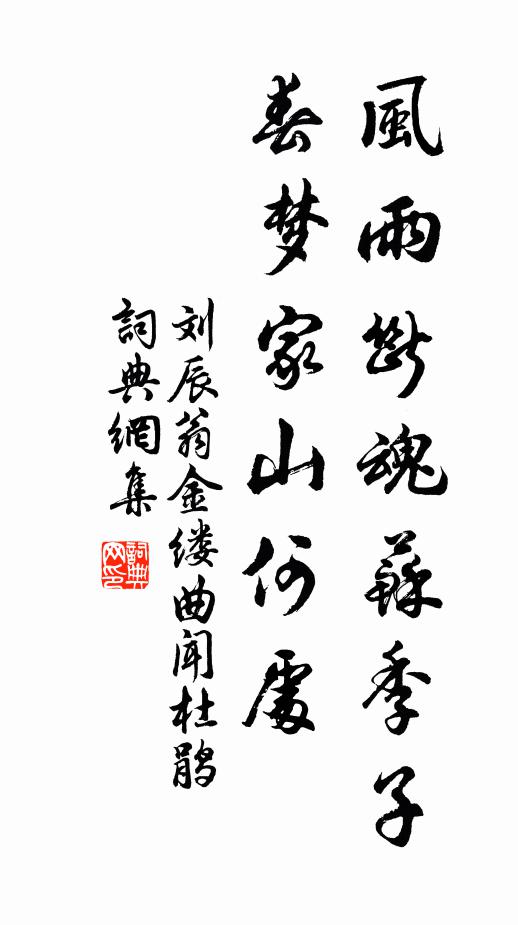 風雨斷魂蘇季子
春梦家山何處
刘辰翁金缕曲闻杜鹃
詞典網集
詞典网印